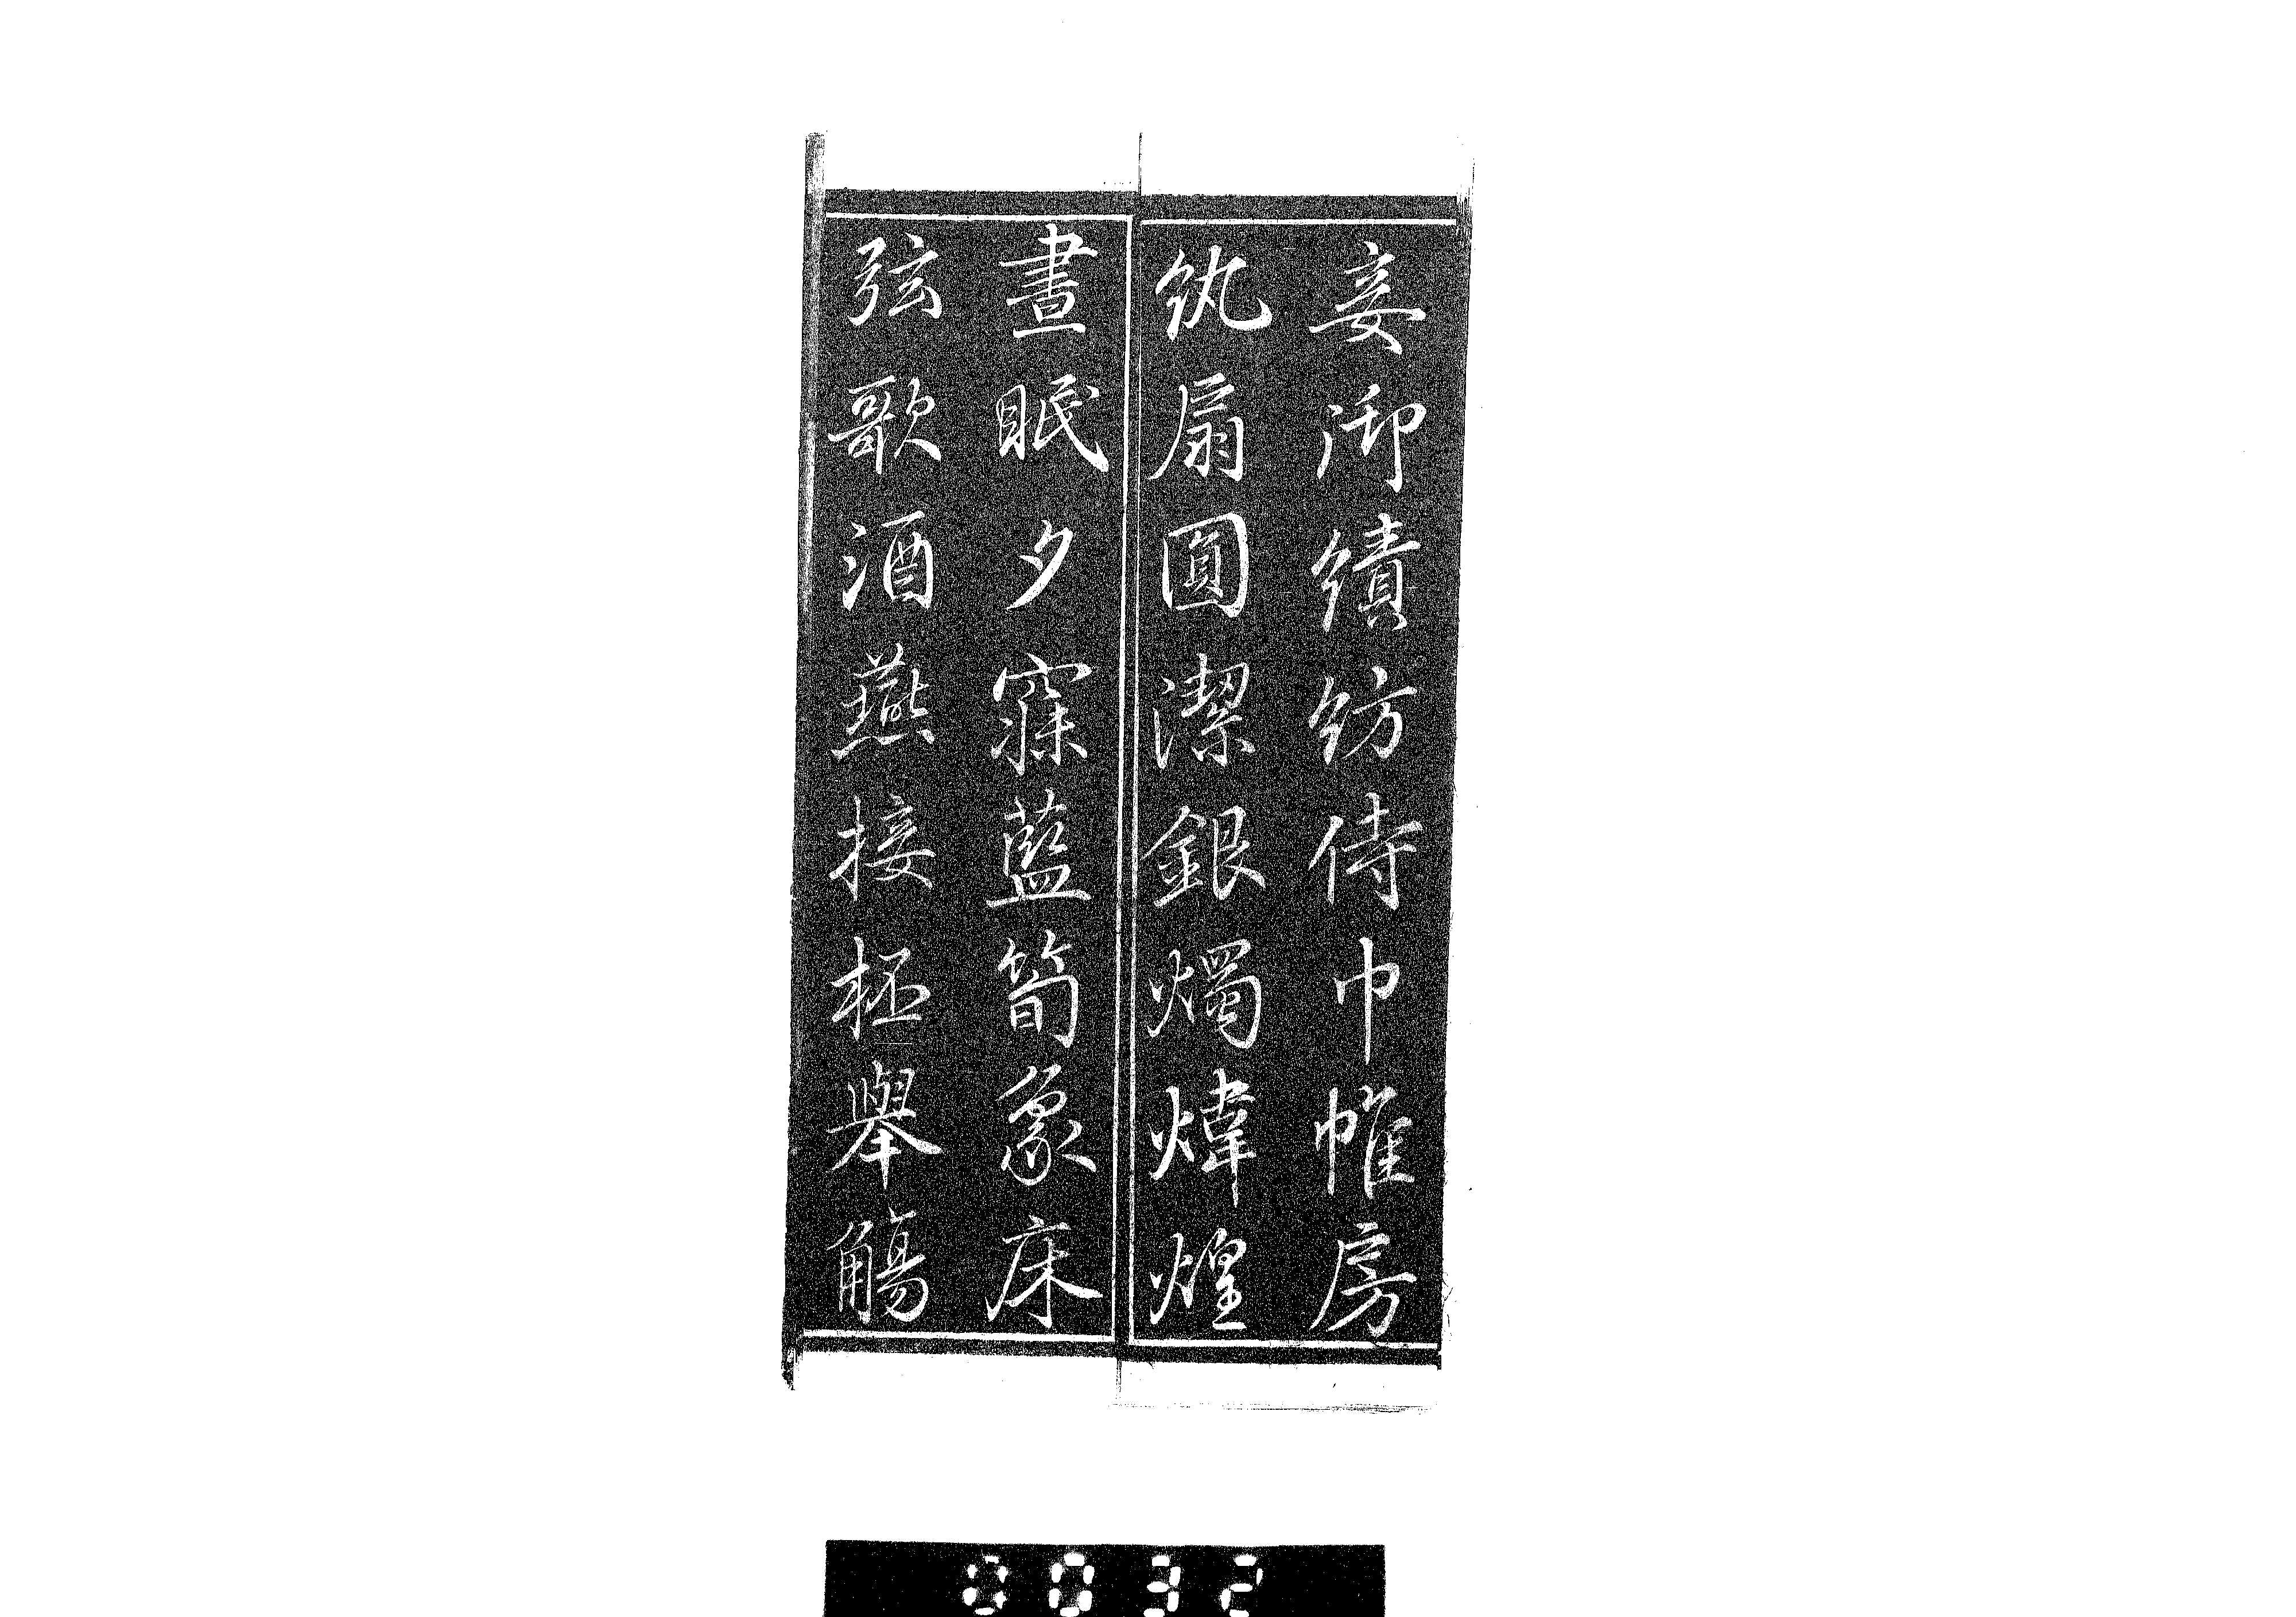 妾御績紡侍巾帷房
紈扇圓潔銀燭煒煌
晝眠夕寐藍筍象床
弦歌酒燕接杯舉觴
0032